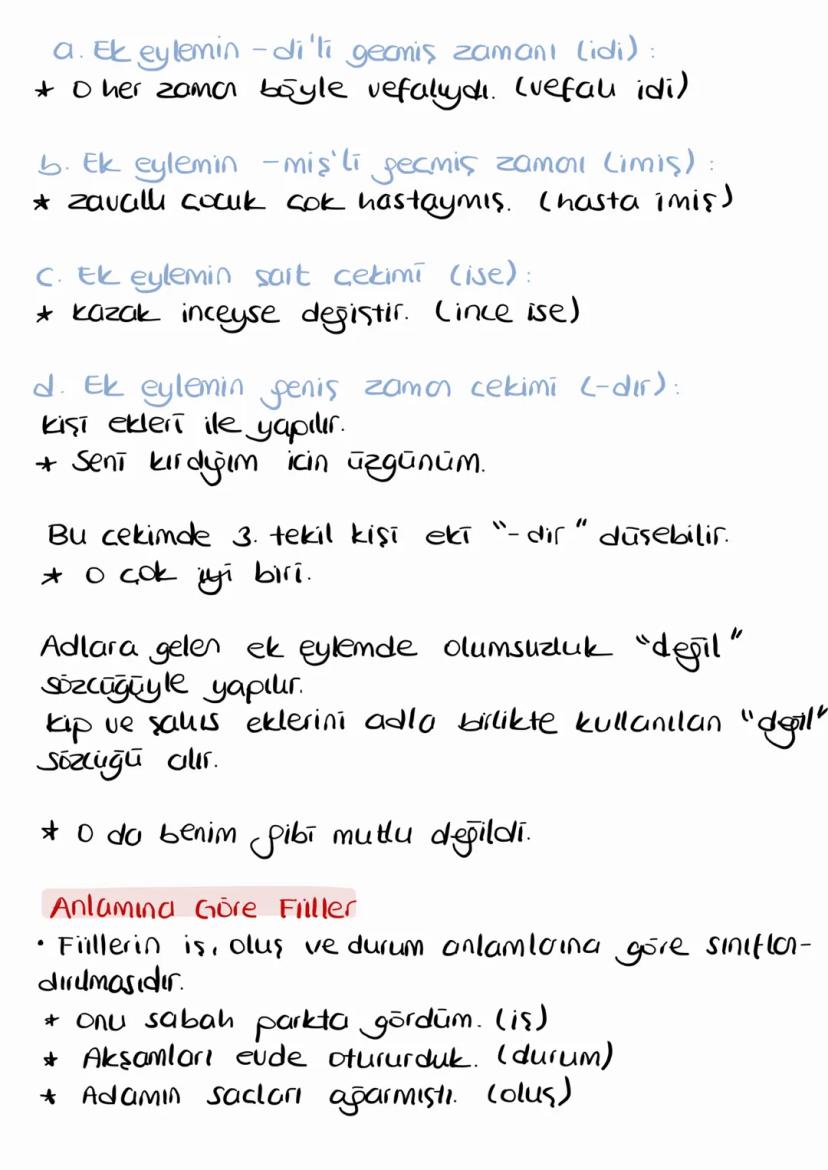 a. Ek eylemin -di'li geçmiş zamanı (idi) :
* O her zaman böyle vefalıydı. (vefalı idi)
b. Ek eylemin -miş'li geçmiş zamanı (imiş) :
* zavallı çocuk çok hastaymış. (hasta imiş)
c. Ek eylemin şart çekimi (ise) :
* kazak inceyse değiştir. (ince ise)
d. Ek eylemin geniş zaman çekimi (-dır) :
kişi ekleri ile yapılır.
* Seni kırdığım için üzgünüm.
Bu çekimde 3. tekil kişi eki "-dir" düşebilir.
* O çok iyi biri.
Adlara gelen ek eylemde olumsuzluk "değil"
sözcüğüyle yapılır.
kip ve şahıs eklerini adla birlikte kullanılan "değil"
sözcüğü alır.
* O da benim gibi mutlu değildi.
Anlamına Göre Fiiller
• Fiillerin iş, oluş ve durum anlamlarına göre sınıflan-
dırılmasıdır.
* onu sabah parkta gördüm. (iş)
* Akşamları evde otururduk. (durum)
* Adamın saçları ağarmıştı. (oluş)